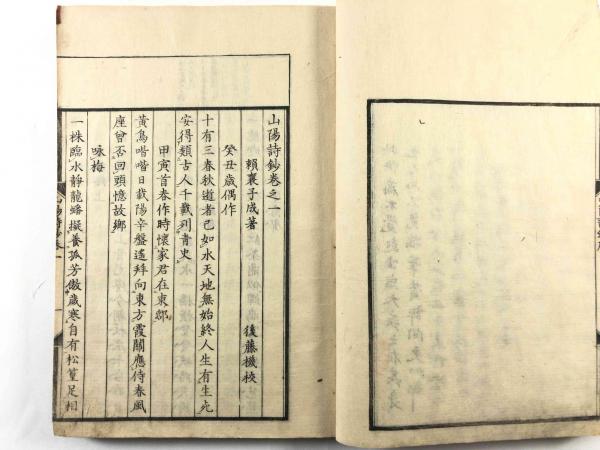 山陽詩鈔卷之一
賴襄子成著
後藤機校
癸丑歲偶作
十有三春秋逝者已如水天地無始終人生有生死
安得類古人千載列青史
甲寅首春作時懷家君在東邸
黃鳥喈喈日載陽辛盤遙拜向東方霞關應侍春風
座曾否回頭憶故鄉
咏梅
一株臨水靜龍蟠擬養孤芳傲歲寒自有松篁足相